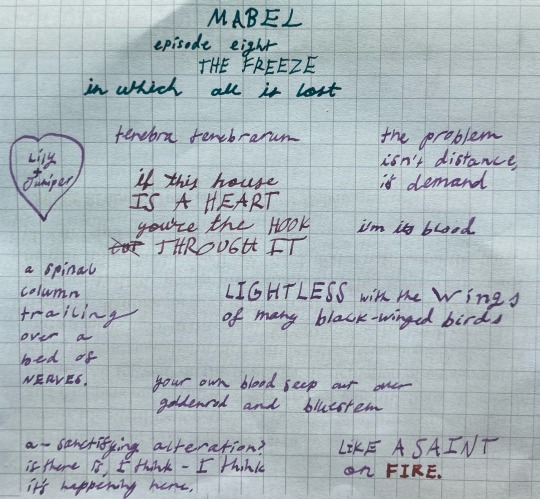 MABEL
episode eight
THE FREEZE
in which all is lost
tenebra tenebrarum
the problem
isn't distance,
is demand
Lily
+
Juniper
if this house
IS A HEART
you're the HOOK
THROUGH IT
i'm its blood
a spinal
column
trailing
over a
bed of
NERVES.
LIGHTLESS with the wings
of many black-winged birds
your own blood seep out over
goldenrod and bluestem
a - sanctifying alteration?
is there is, I think - I think
it's happening here.
LIKE A SAINT
on FIRE.